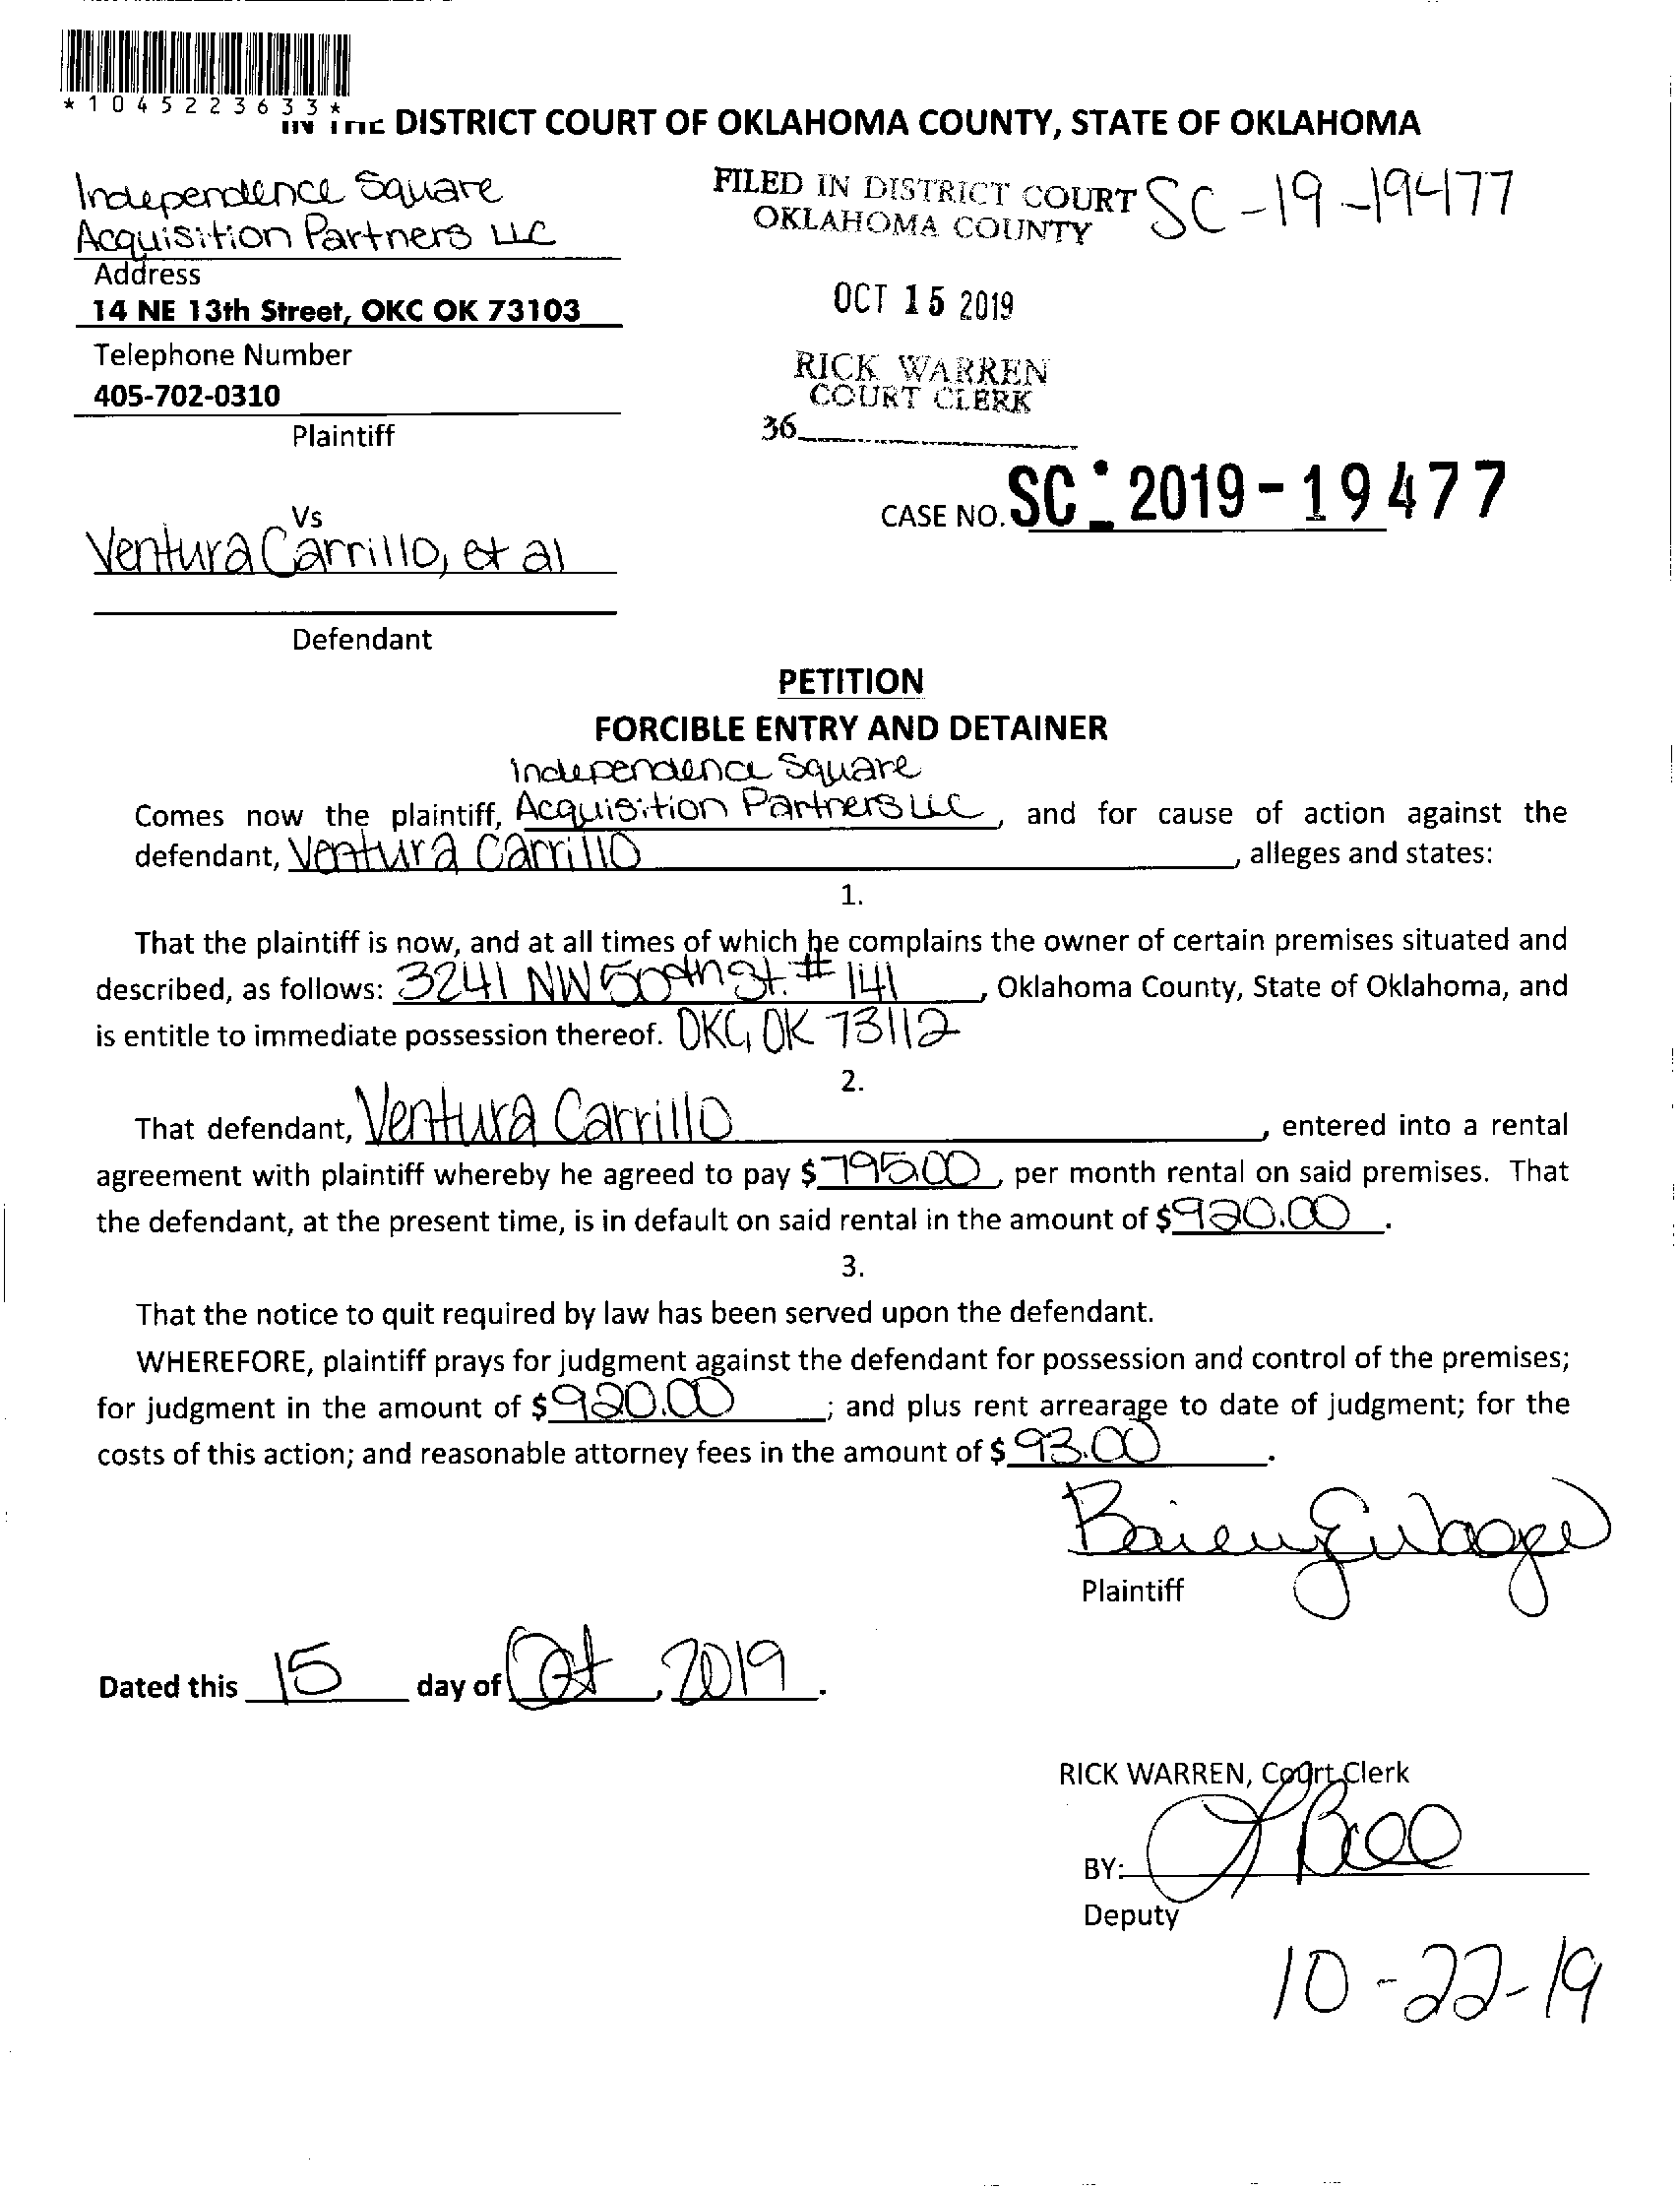 *1045223633*
IN THE DISTRICT COURT OF OKLAHOMA COUNTY, STATE OF OKLAHOMA
Independence Square
Acquisition Partners LLC
Address
14 NE 13th Street, OKC OK 73103
Telephone Number
405-702-0310
Plaintiff
FILED IN DISTRICT COURT
OKLAHOMA COUNTY
SC-19-19477
OCT 15 2019
RICK WARREN
COURT CLERK
36
CASE NO. SC-2019-19477
Vs
Ventura Carrillo, et al
Defendant
PETITION
FORCIBLE ENTRY AND DETAINER
Independence Square
Comes now the plaintiff, Acquisition Partners LLC, and for cause of action against the
defendant, Ventura Carrillo, alleges and states:
1.
That the plaintiff is now, and at all times of which he complains the owner of certain premises situated and
described, as follows: 3241 NW 50th St. # 141, Oklahoma County, State of Oklahoma, and
is entitle to immediate possession thereof. OKC, OK 73112
2.
That defendant, Ventura Carrillo, entered into a rental
agreement with plaintiff whereby he agreed to pay $795.00, per month rental on said premises. That
the defendant, at the present time, is in default on said rental in the amount of $920.00.
3.
That the notice to quit required by law has been served upon the defendant.
WHEREFORE, plaintiff prays for judgment against the defendant for possession and control of the premises;
for judgment in the amount of $920.00; and plus rent arrearage to date of judgment; for the
costs of this action; and reasonable attorney fees in the amount of $93.00.
Plaintiff
Dated this 15 day of Oct, 2019.
RICK WARREN, Court Clerk
BY:
Deputy
10-22-19